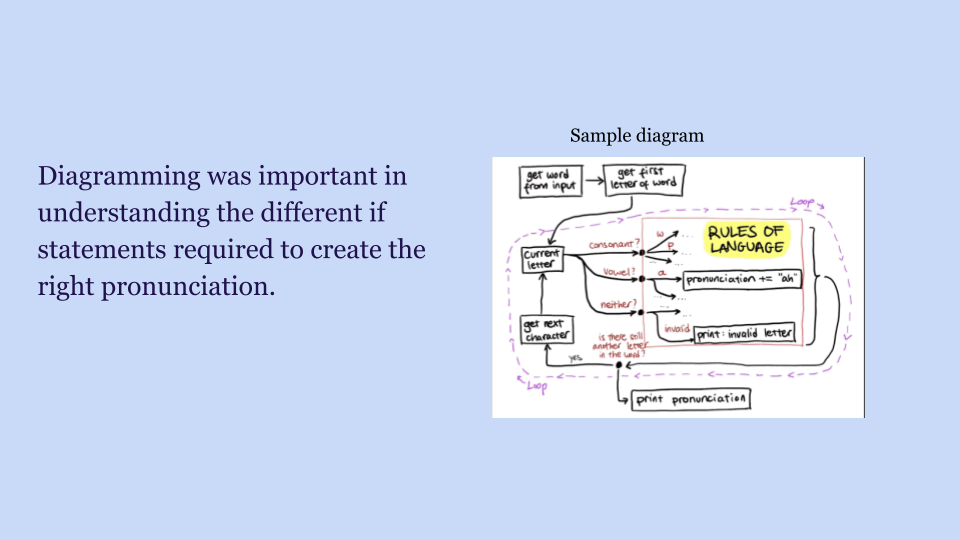 Diagramming was important in
understanding the different if
statements required to create the
right pronunciation.
Sample diagram
get word
from input
get first
letter of word
Loop
RULES OF
LANGUAGE
consonant?
w
p
...
...
...
current
letter
vowel?
a
pronunciation += "ah"
...
...
neither?
...
get next
character
invalid
print: invalid letter
is there still
another letter
in the word?
yes
Loop
print pronunciation